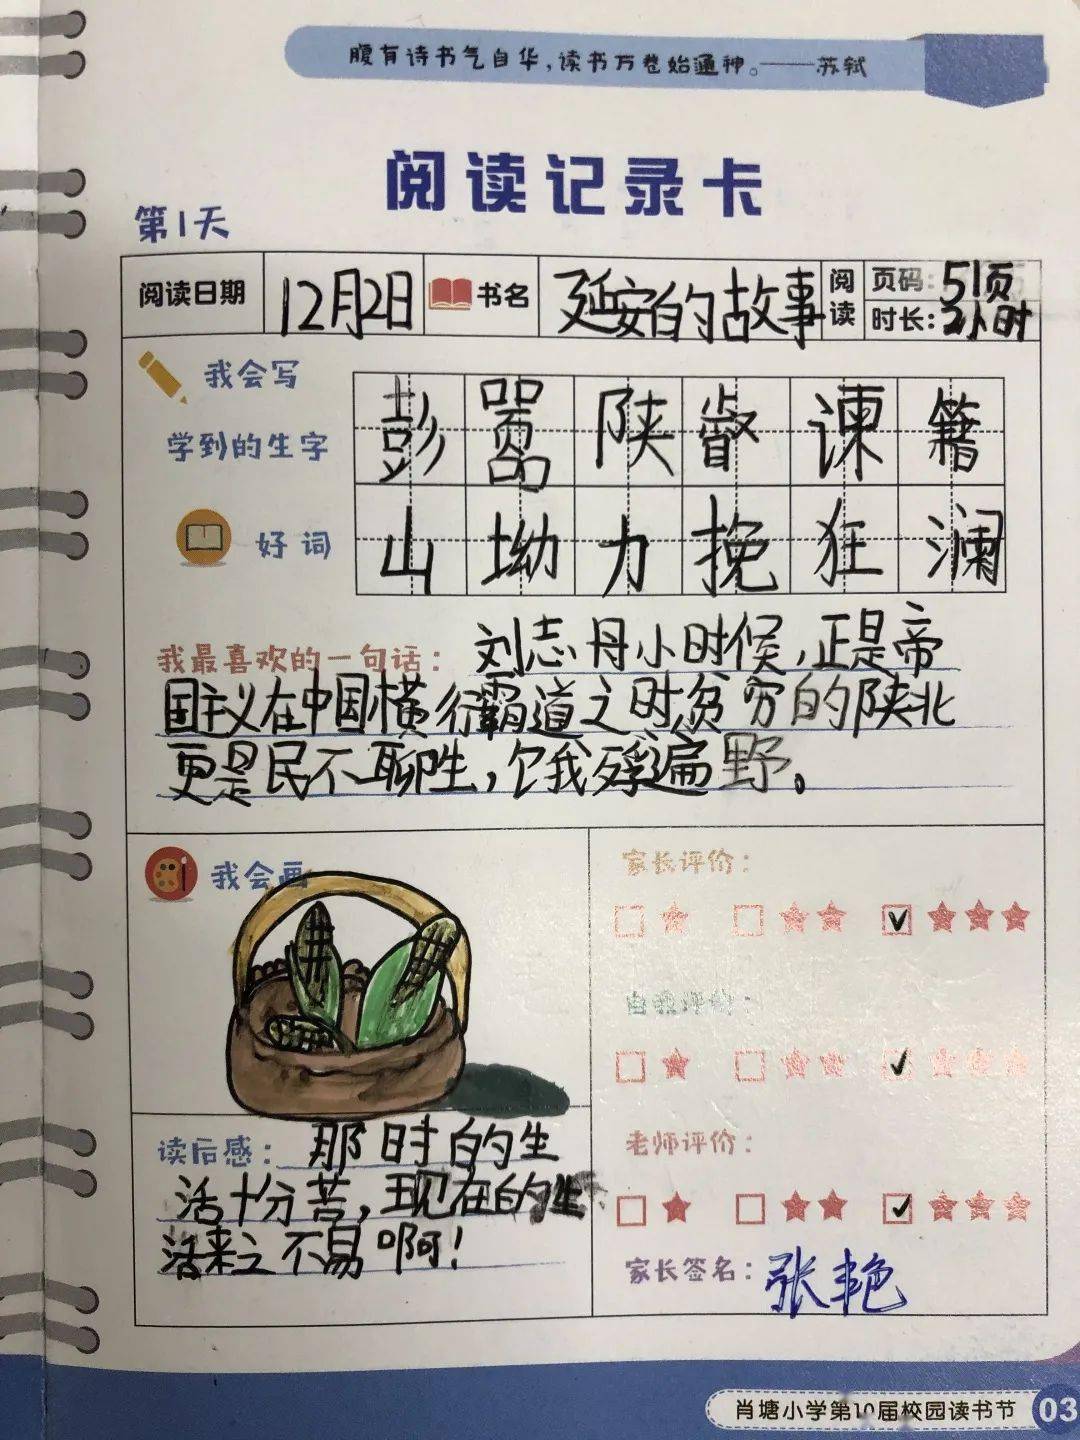 腹有诗书气自华,读书万卷始通神。——苏轼
阅读记录卡
第1天
阅读日期 12月2日 书名 延安的故事 阅读 页码:51页
时长:2小时
我会写
学到的生字
彭 嚣 陕 睿 谏 籍
好词
山 坳 力 挽 狂 澜
我最喜欢的一句话: 刘志丹小时候,正是帝
国主义在中国横行霸道之时,贫穷的陕北
更是民不聊生,饿殍遍野。
我会画
家长评价:
自我评价:
老师评价:
读后感: 那时的生
活十分苦,现在的生
活来之不易啊!
家长签名: 张艳
肖塘小学第10届校园读书节 03